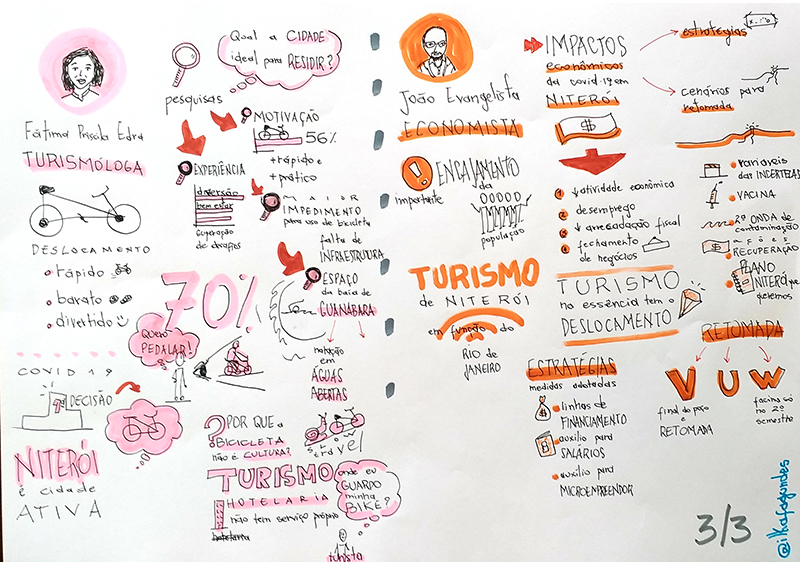 Fátima Priscila Edra
TURISMÓLOGA
DESLOCAMENTO
rápido
barato
divertido
COVID 19
DECISÃO
NITERÓI
é cidade
ATIVA
pesquisas
Qual a CIDADE
ideal para RESIDIR?
MOTIVAÇÃO
56%
+ rápido e
+ prático
EXPERIÊNCIA
diversão
bem estar
MAIOR
IMPEDIMENTO
para uso de bicicleta
falta de
INFRAESTRUTURA
ESPAÇO
da baía de
GUANABARA
natação
em
ÁGUAS
ABERTAS
70%
Quero
PEDALAR!
? POR QUE a
BICICLETA
não é CULTURA?
TURISMO
HOTELARIA
não tem serviço próprio
onde eu
GUARDO
minha
BIKE?
turista
João Evangelista
ECONOMISTA
importante
ENGAJAMENTO
da
população
TURISMO
de NITERÓI
em função do
RIO de
JANEIRO
IMPACTOS
econômicos
da covid-19 em
NITERÓI
$
1 ↓ atividade econômica
2 desemprego
3 ↓ arrecadação fiscal
4 fechamento
de negócios
estratégias
cenários para
retomada
variáveis
das INCERTEZAS
VACINA
2ª ONDA de
contaminação
AÇÕES
RECUPERAÇÃO
PLANO
NITERÓI que
queremos
TURISMO
na essência tem o
DESLOCAMENTO
ESTRATÉGIAS
medidas adotadas
linhas de
FINANCIAMENTO
auxílio para
SALÁRIOS
auxílio para
MICROEMPREENDOR
RETOMADA
V U W
final do poço
e
RETOMADA
no 2º
semestre
3/3
@ilkafagundes